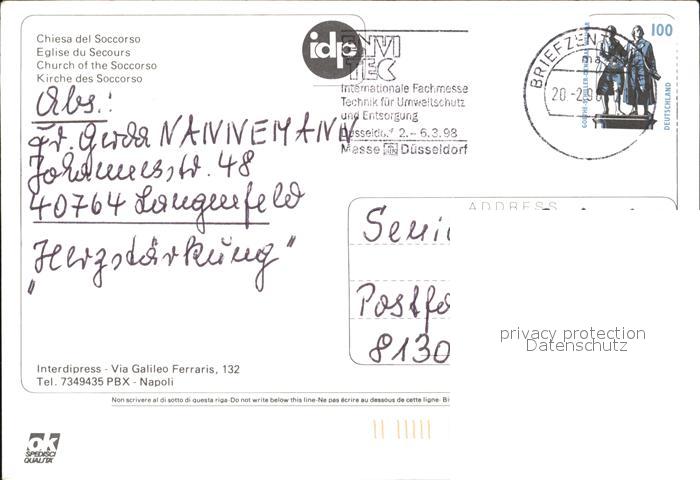 Chiesa del Soccorso
Eglise du Secours
Church of the Soccorso
Kirche des Soccorso
idp
ENVI
TEC
Internationale Fachmesse
Technik für Umweltschutz
und Entsorgung
Düsseldorf 2.-6.3.98
Messe Düsseldorf
BRIEFZENT
20.-2.98
100
GOETHE-SCHILLER-DENKMAL WEIMAR
DEUTSCHLAND
Abs.:
Fr. Gerda NANNEMANN
Johannesstr. 48
40764 Langenfeld
"Herzstärkung"
ADDRESS
Postfa
8130
privacy protection
Datenschutz
Interdipress - Via Galileo Ferraris, 132
Tel. 7349435 PBX - Napoli
Non scrivere al di sotto di questa riga-Do not write below this line-Ne pas écrire au dessous de cette ligne- Bi
ok
SPEDISCI
QUALITA'